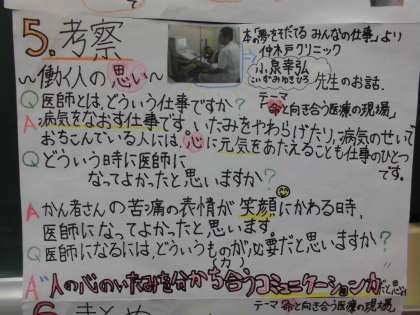 5. 考察
～働く人の思い～
本「夢をそだてる みんなの仕事」より
仲木戸クリニック
小泉幸弘 先生のお話.
こいずみゆきひろ
テーマ
「命と向き合う医療の現場」
Q 医師とは、どういう仕事ですか?
A 病気をなおす仕事です。いたみをやわらげたり、病気のせいで
おちこんでいる人には、心に元気をあたえることも仕事のひとつ
です。
Q どういう時に医師に
なってよかったと思いますか?
A かん者さんの苦痛の表情が笑顔にかわる時、
医師になってよかったと思います。
Q 医師になるには、どういうものが必要だと思いますか?
(力)
A 人の心のいたみを分かち合うコミュニケーション力だと思う
テーマ 命と向き合う医療の現場
6. まとめ